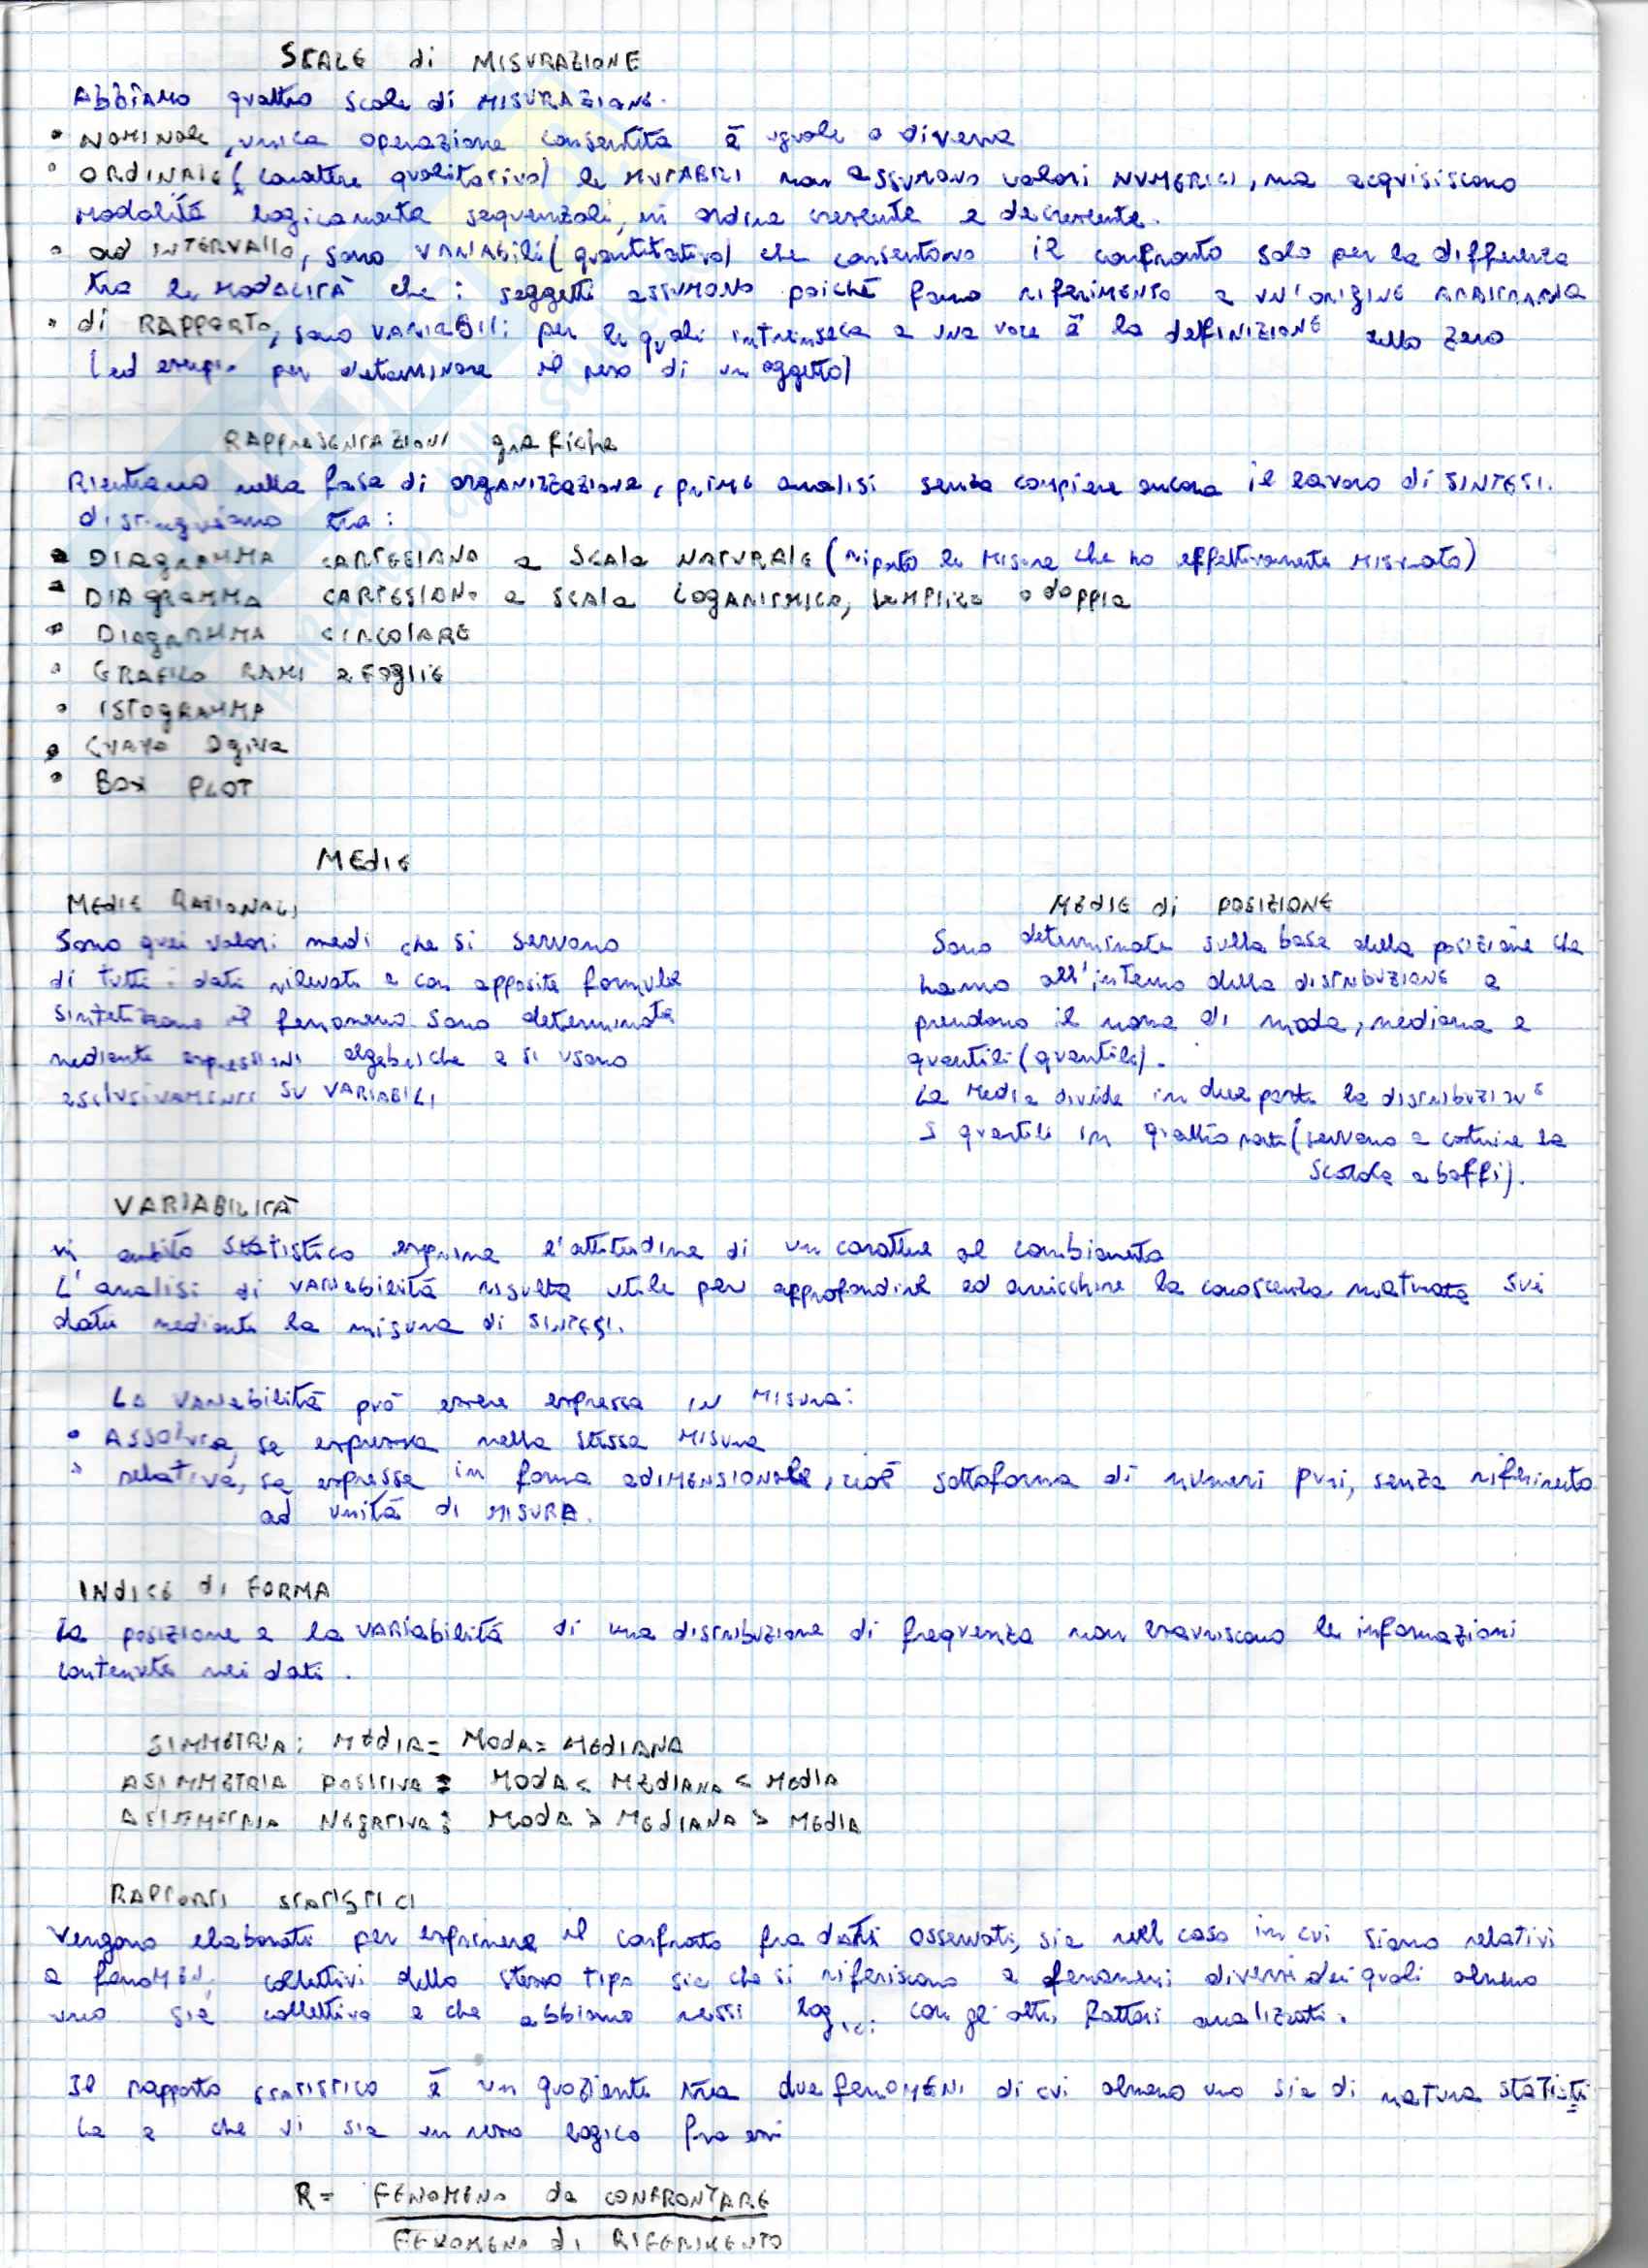 SCALE di MISURAZIONE
Abbiamo quattro scale di MISURAZIONE.
• NOMINALE, unica operazione consentita è uguale o diverso
• ORDINALE (carattere qualitativo) le MUTABILI non assumono valori NUMERICI, ma acquisiscono
modalità logicamente sequenziali, in ordine crescente e decrescente.
• ad INTERVALLO, sono VARIABILI (quantitativo) che consentono il confronto solo per la differenza
tra le MODALITÀ che i soggetti assumono poiché fanno riferimento a un'origine ARBITRARIA
• di RAPPORTO, sono VARIABILI per le quali intrinseca a una voce è la definizione dello zero
(ad esempio per determinare il peso di un oggetto)
RAPPRESENTAZIONI grafiche
Rientrano nella fase di organizzazione, prime analisi senza compiere ancora il lavoro di SINTESI.
distinguiamo tra:
• DIAGRAMMA CARTESIANO a SCALA NATURALE (riporto le misure che ho effettivamente misurato)
• DIAGRAMMA CARTESIANO a SCALA LOGARITMICA, semplice o doppia
• DIAGRAMMA CIRCOLARE
• GRAFICO RAMI e FOGLIE
• ISTOGRAMMA
• CURVA Ogiva
• BOX PLOT
MEDIE
MEDIE RAZIONALI
Sono quei valori medi che si servono
di tutti i dati rilevati e con apposite formule
sintetizzano il fenomeno. Sono determinate
mediante espressioni algebriche e si usano
esclusivamente su VARIABILI
MEDIE di POSIZIONE
Sono determinate sulla base della posizione che
hanno all'interno della distribuzione e
prendono il nome di moda, mediana e
quantili (quantile).
La Media divide in due parti la distribuzione
I quartili in quattro parti (servono a costruire la
scatola a baffi).
VARIABILITÀ
in ambito statistico esprime l'attitudine di un carattere al cambiamento
L'analisi di variabilità risulta utile per approfondire ed arricchire la conoscenza maturata sui
dati mediante la misura di SINTESI.
La variabilità può essere espressa in misura:
• Assoluta, se espressa nella stessa misura
• relativa, se espressa in forma adimensionale, cioè sottoforma di numeri puri, senza riferimento
ad unità di MISURA.
INDICE di FORMA
La posizione e la variabilità di una distribuzione di frequenza non esauriscono le informazioni
contenute nei dati.
SIMMETRIA: MEDIA = MODA = MEDIANA
ASIMMETRIA POSITIVA: MODA < MEDIANA < MEDIA
ASIMMETRIA NEGATIVA: MODA > MEDIANA > MEDIA
RAPPORTI STATISTICI
Vengono elaborati per esprimere il confronto fra dati osservati, sia nell caso in cui siano relativi
a fenomeni collettivi dello stesso tipo sia che si riferiscano a fenomeni diversi dei quali almeno
uno sia collettivo e che abbiamo nessi logici con gli altri fattori analizzati.
Il rapporto statistico è un quoziente tra due fenomeni di cui almeno uno sia di natura statisti
ca e che vi sia un nesso logico fra essi
R = FENOMENO da CONFRONTARE
FENOMENO di RIFERIMENTO